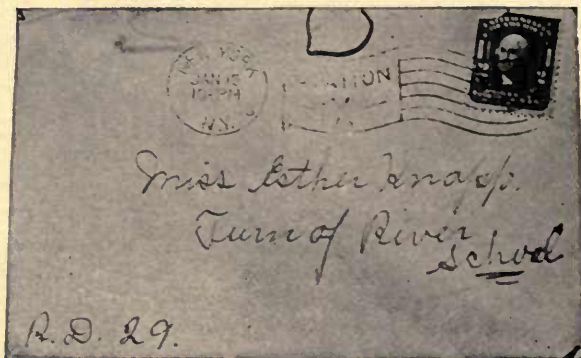 NEW YORK
JAN 13
10-PM
N.Y.
STATION
Miss Esther Knapp.
Turn of River
School
R.D. 29.